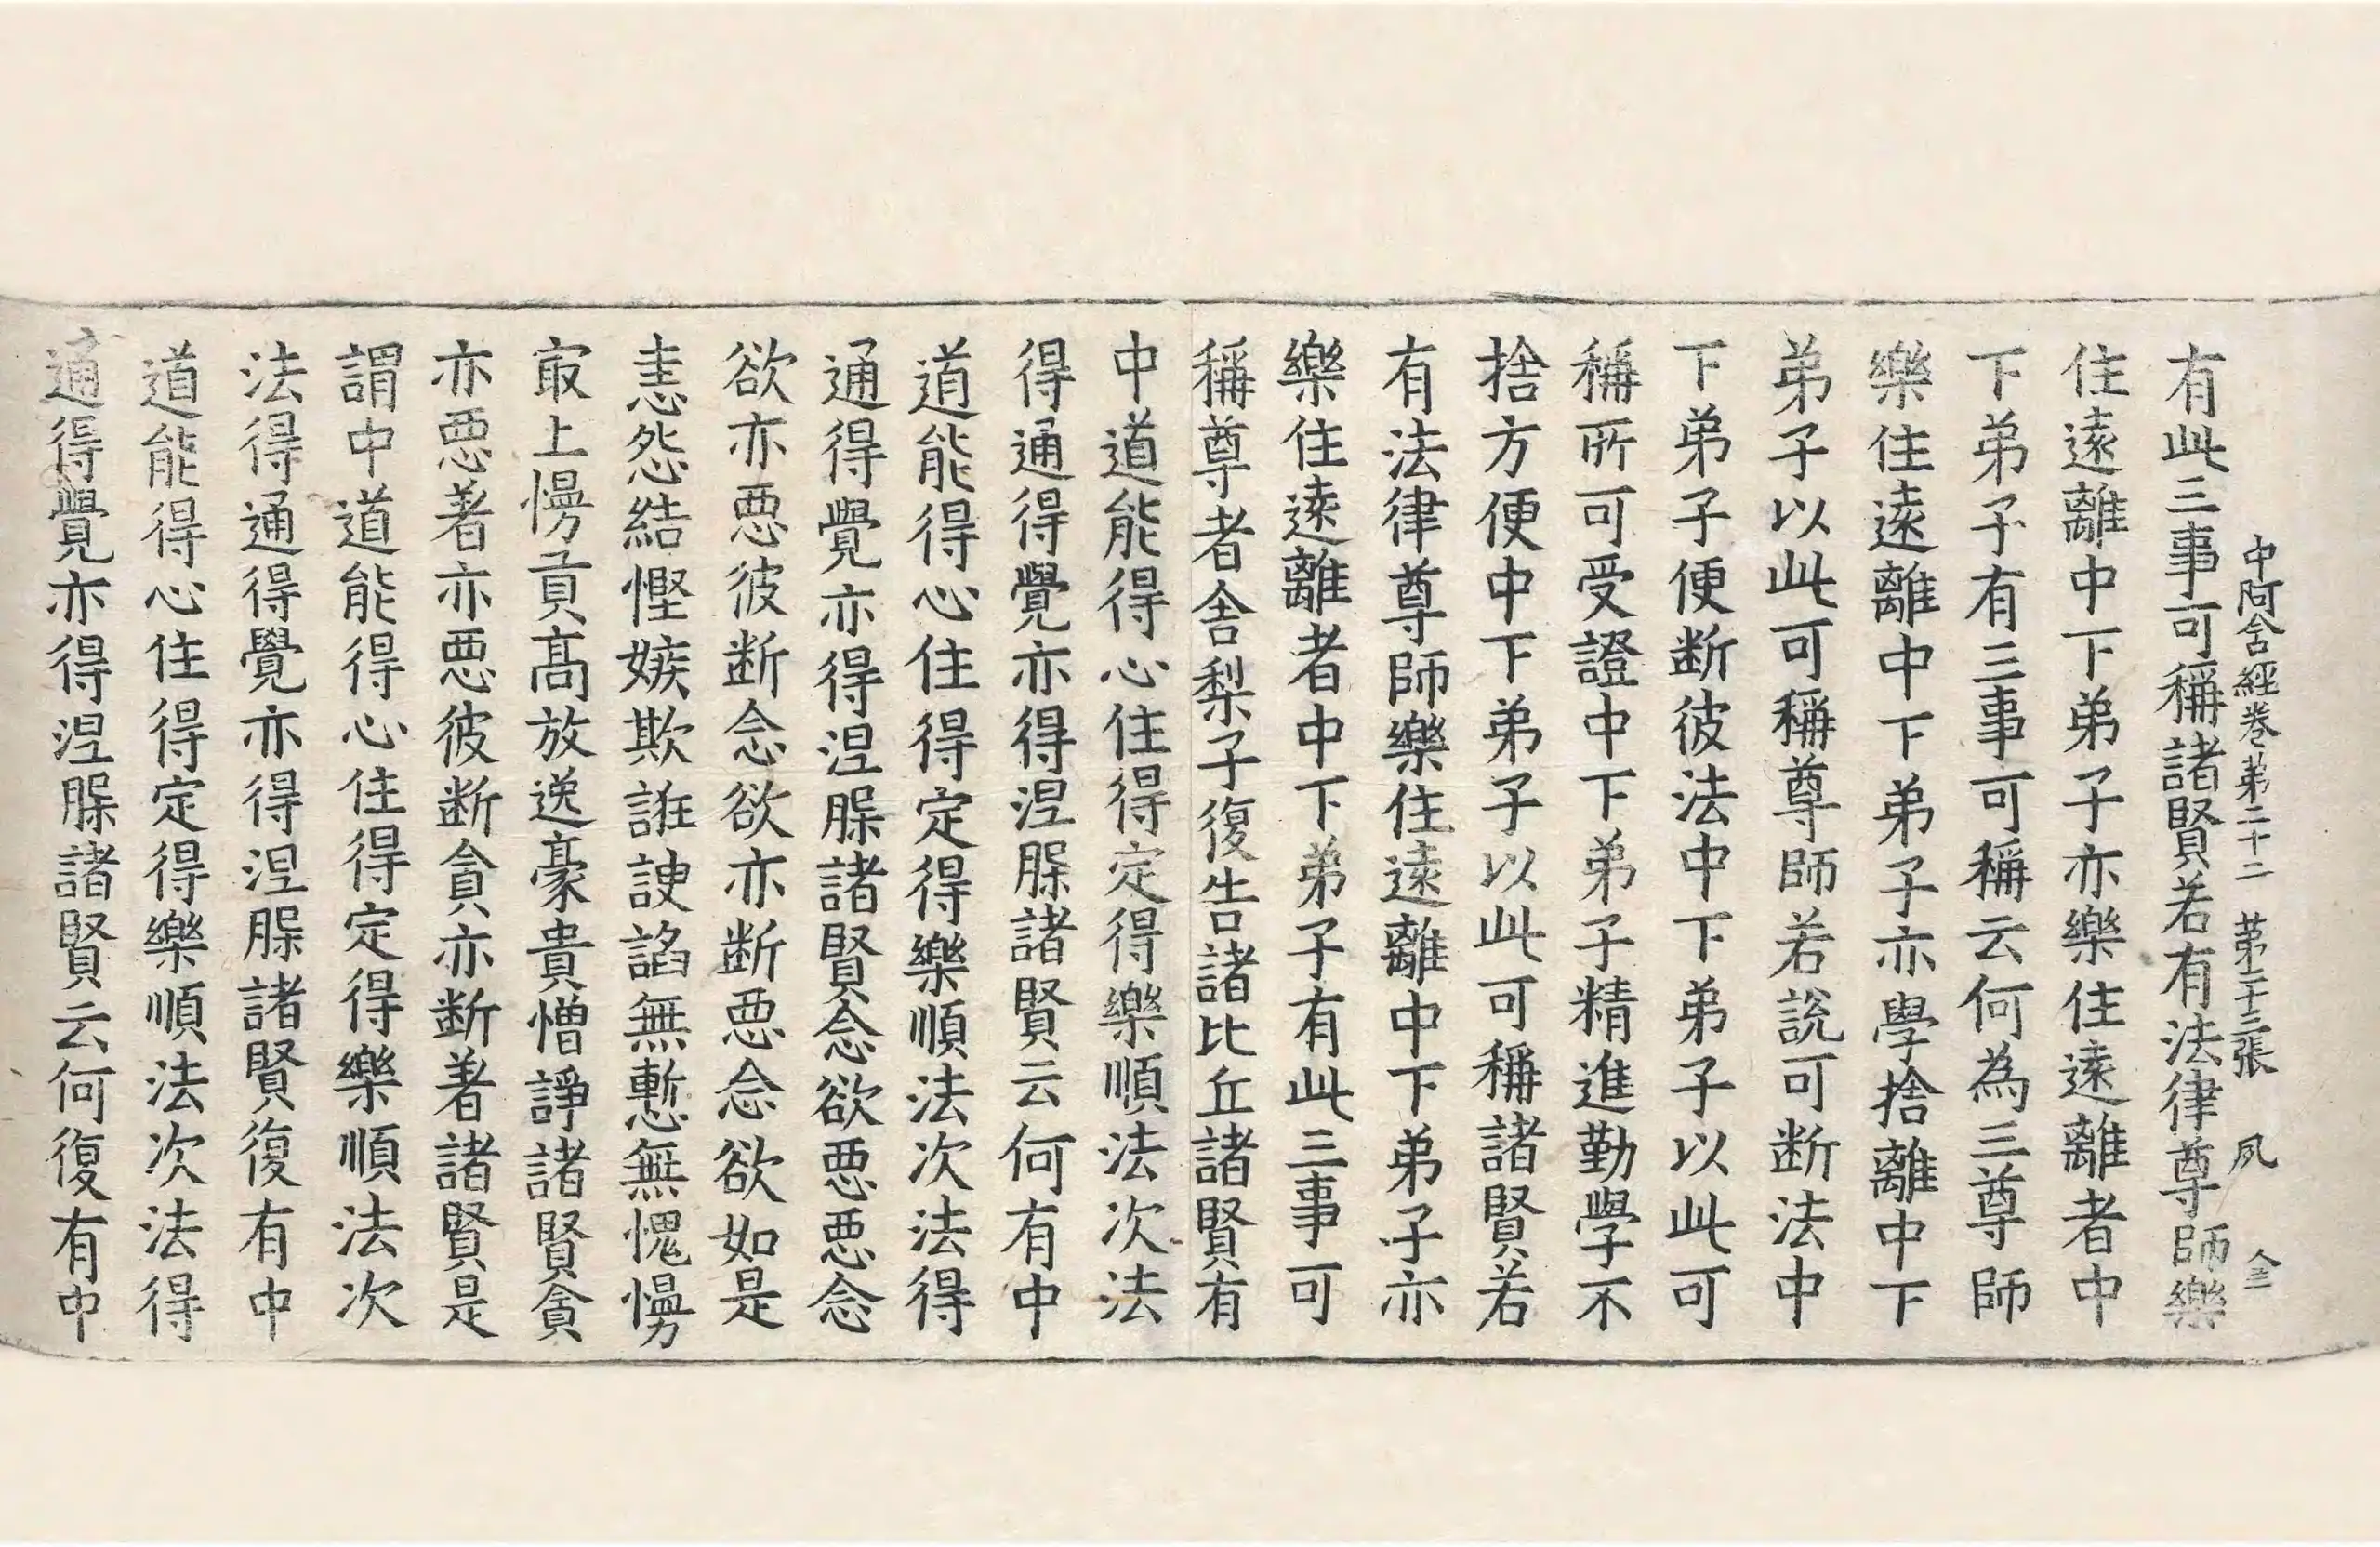 中阿含經卷第二十二 第二十三張 夙 仝
有此三事可稱諸賢若有法律尊師樂
住遠離中下弟子亦樂住遠離者中
下弟子有三事可稱云何為三尊師
樂住遠離中下弟子亦學捨離中下
弟子以此可稱尊師若說可断法中
下弟子便断彼法中下弟子以此可
稱所可受證中下弟子精進勤學不
捨方便中下弟子以此可稱諸賢若
有法律尊師樂住遠離中下弟子亦
樂住遠離者中下弟子有此三事可
稱尊者舍梨子復告諸比丘諸賢有
中道能得心住得定得樂順法次法
得通得覺亦得涅槃諸賢云何有中
道能得心住得定得樂順法次法得
通得覺亦得涅槃諸賢念欲惡惡念
欲亦惡彼断念欲亦断惡念欲如是
恚怨結慳嫉欺誑諛諂無慙無愧慢
冣上慢貢高放逸豪貴憎諍諸賢貪
亦惡著亦惡彼断貪亦断著諸賢是
謂中道能得心住得定得樂順法次
法得通得覺亦得涅槃諸賢復有中
道能得心住得定得樂順法次法得
通得覺亦得涅槃諸賢云何復有中